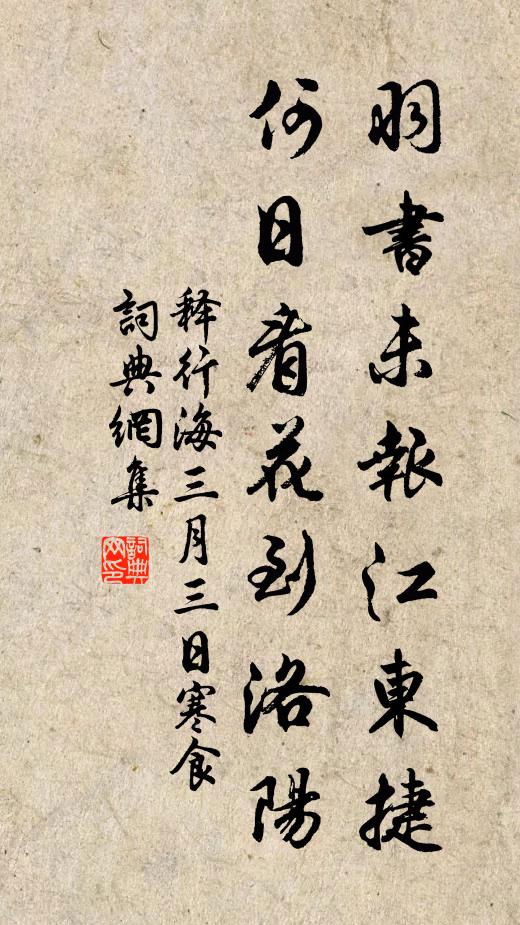 羽書未報江東捷
何日看花到洛陽
释行海三月三日寒食
詞典網集
詞典网印